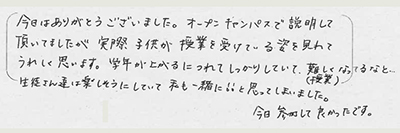 今日はありがとうございました。オープンキャンパスで説明して
頂いてましたが実際子供が授業を受けている姿を見れて
うれしく思います。学年が上がるにつれてしっかりしていて、難しくなってるなと…
(授業)
生徒さん達は楽しそうにしていて私も一緒にいいと思ってしまいました。
今日参加して良かったです。